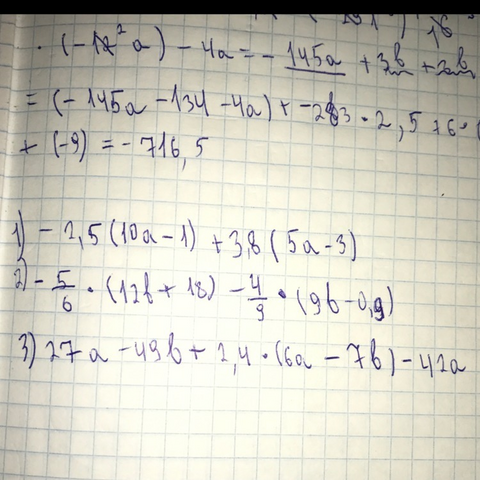 · (-12² a) - 4a = - 145a + 3b + 2b
= (- 145a - 134 - 4a) + -283 · 2,5 + 6 · (
+ (-9) = - 716,5
1) - 2,5 (10a - 1) + 3,8 (5a - 3)
2) - 5/6 · (12b + 18) - 4/9 · (9b - 0,9)
3) 27a - 49b + 2,4 · (6a - 7b) - 42a